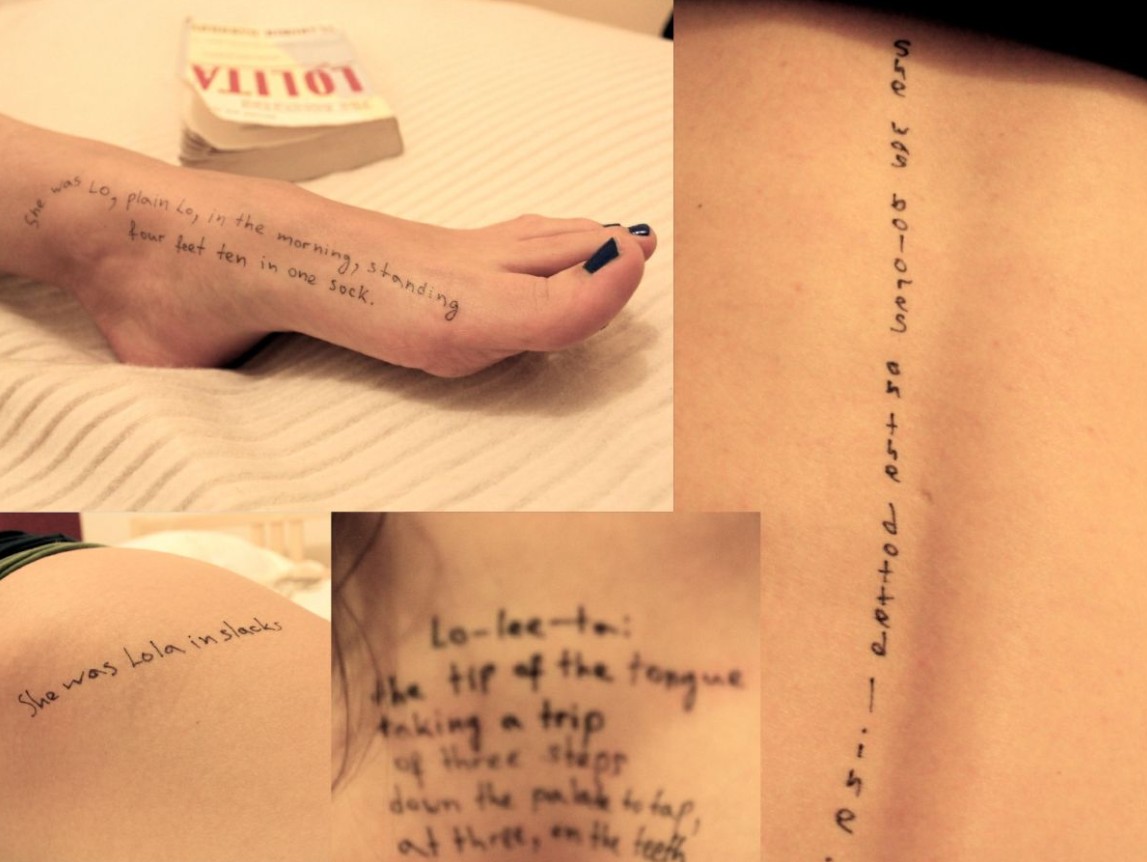 VLADIMIR NABOKOV
LOLITA
She was Lo, plain Lo, in the morning, standing
four feet ten in one sock.
She was Dolores on the dotted line.
She was Lola in slacks
Lo-lee-ta:
the tip of the tongue
taking a trip
of three steps
down the palate to tap,
at three, on the teeth